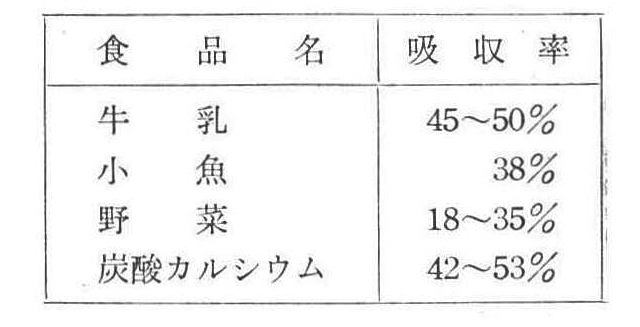 食品名 吸収率
牛乳 45～50%
小魚 38%
野菜 18～35%
炭酸カルシウム 42～53%